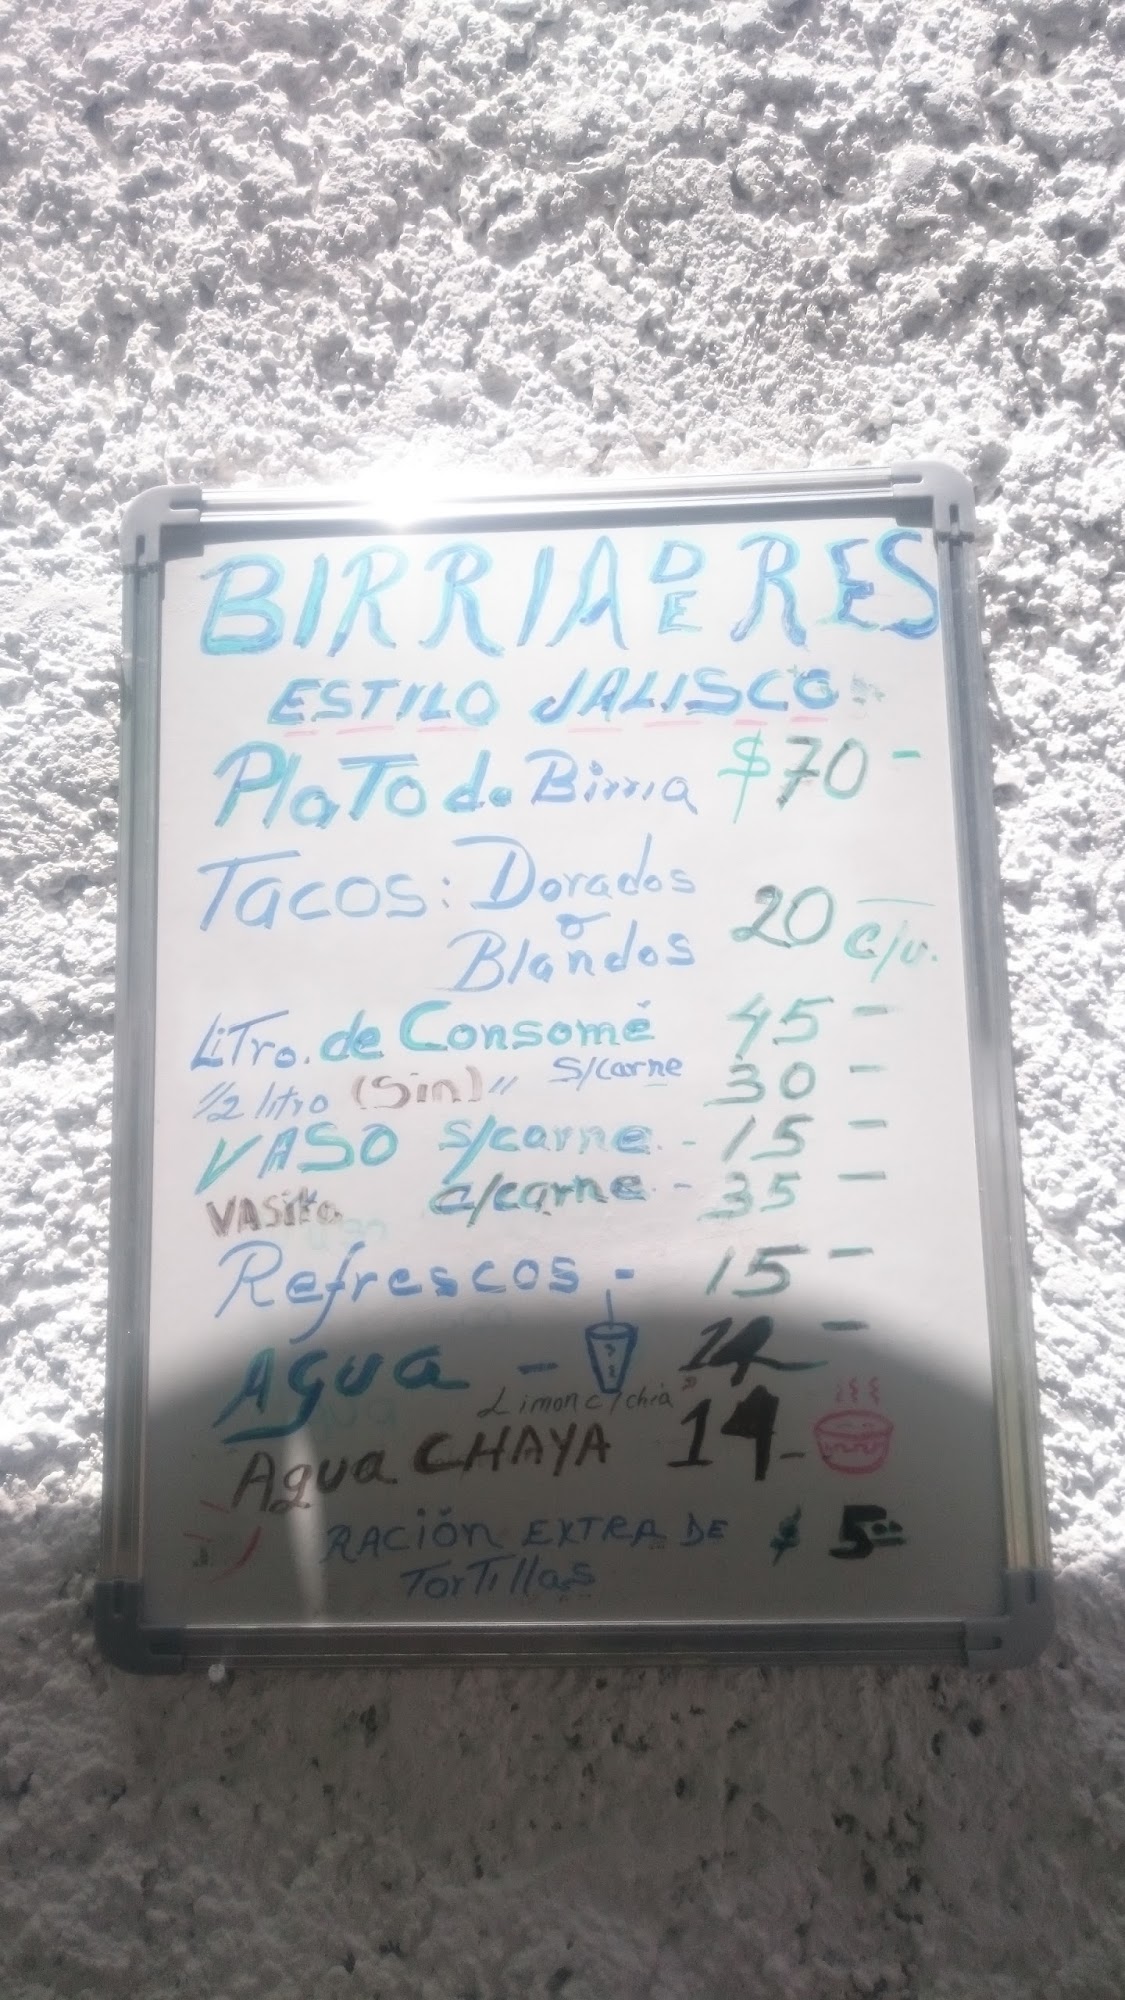 BIRRIA DE RES
ESTILO JALISCO
Plato de Birria $70-
Tacos: Dorados o Blandos 20 c/u.
Litro. de Consomé 45-
1/2 litro (Sin) " s/carne 30-
VASO s/carne - 15-
VASito c/carne - 35-
Refrescos - 15-
Agua - 12-
Limon c/chia"
Agua CHAYA 14-
RACIÓN EXTRA DE $ 5.00
TorTillas